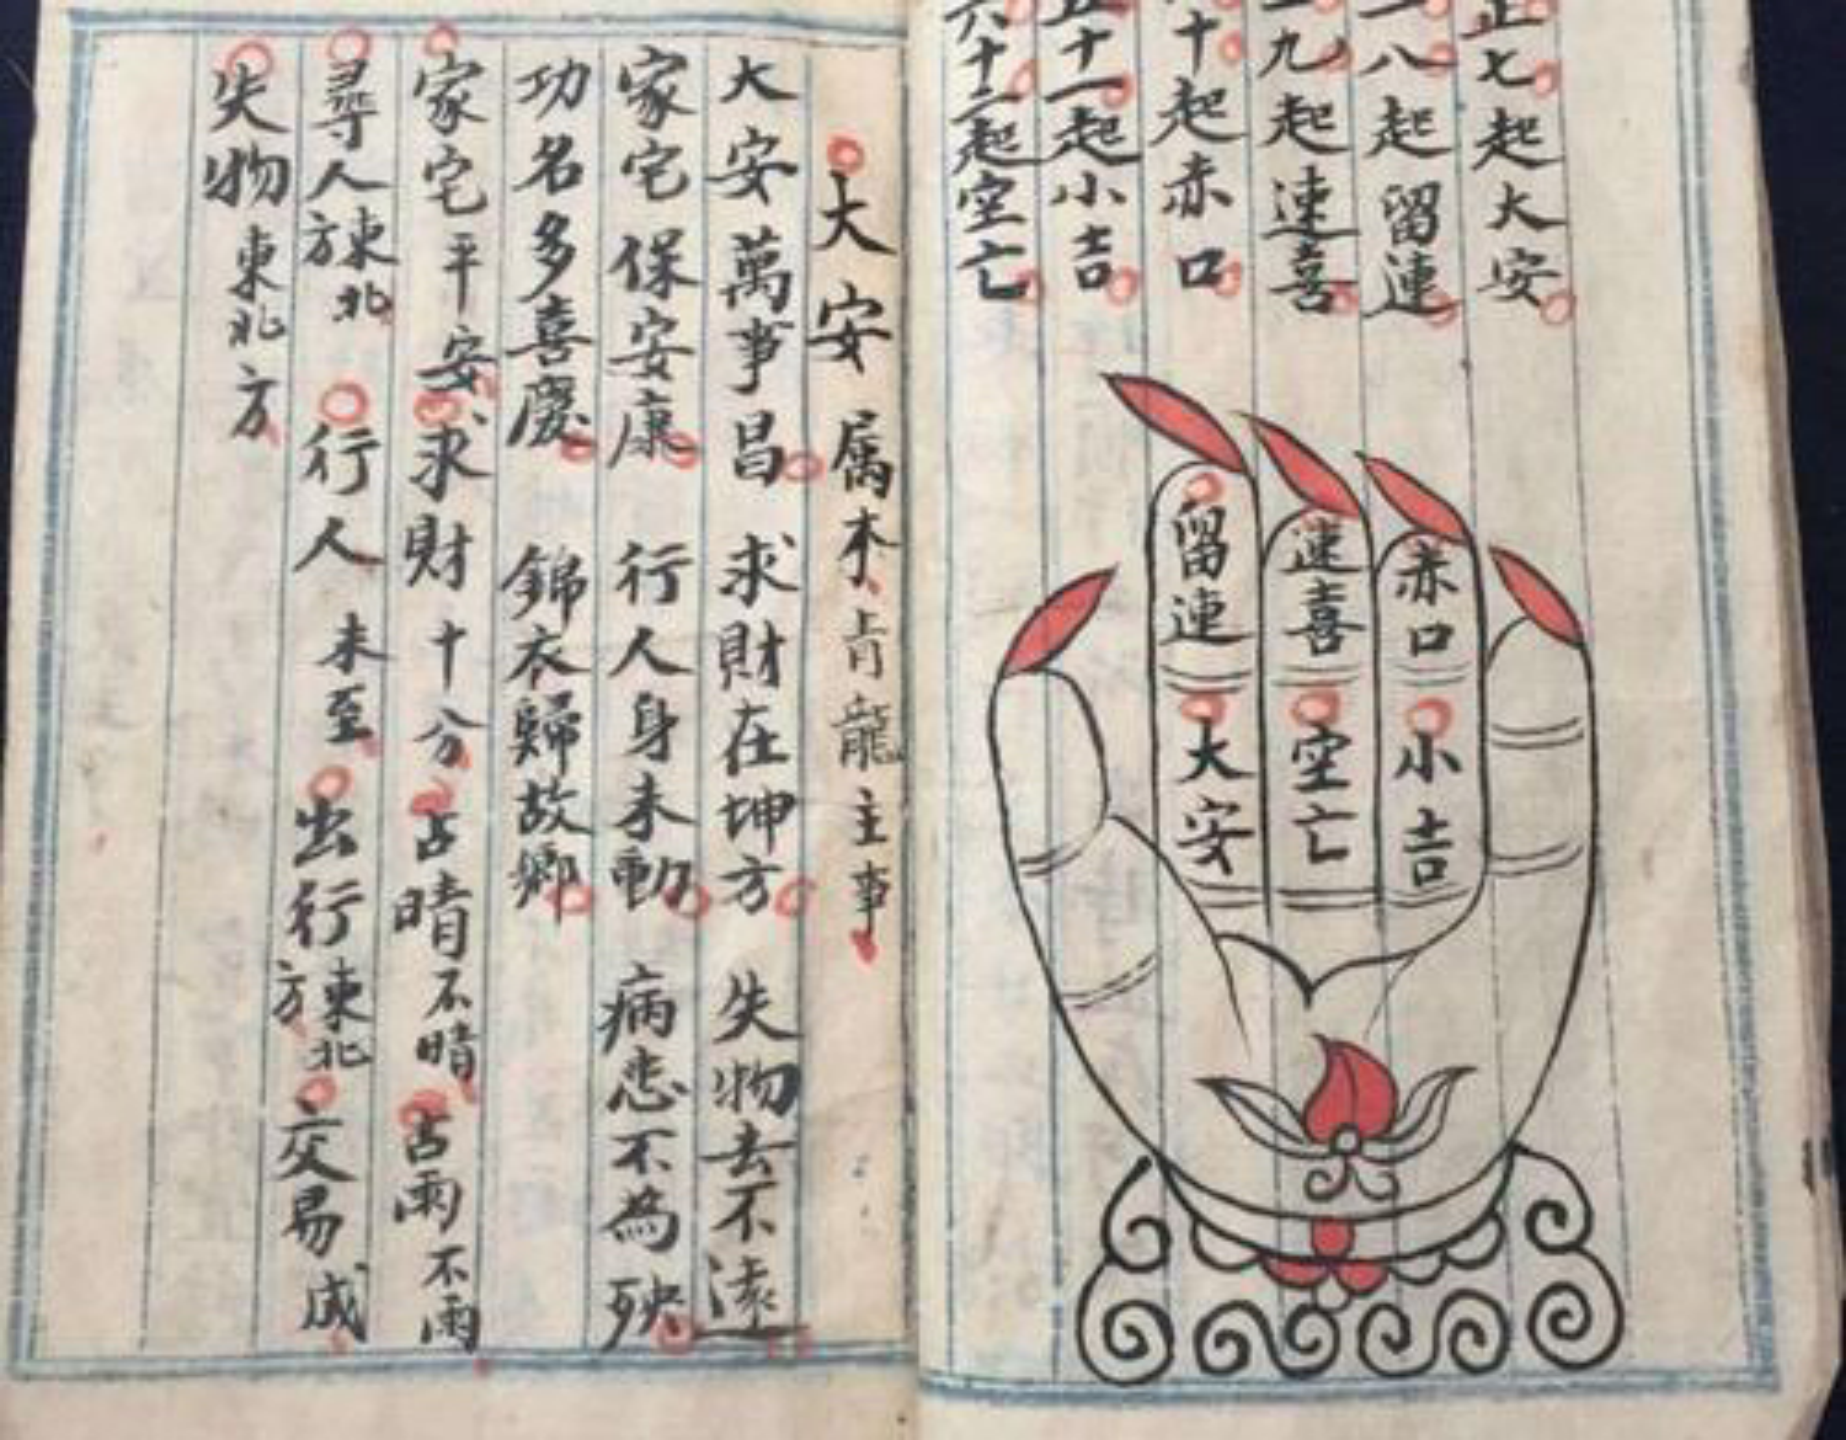 正七起大安
二八起留連
三九起速喜
十起赤口
五十一起小吉
六十二起空亡
留連
速喜
赤口
大安
空亡
小吉
大安 属木青龍主事
大安萬事昌 求財在坤方 失物去不遠
家宅保安康 行人身未動 病恙不為殃
功名多喜慶 錦衣歸故鄉
家宅平安 求財十分 占晴不晴 占雨不雨
尋人東北方 行人未至 出行東北方 交易成
失物東北方